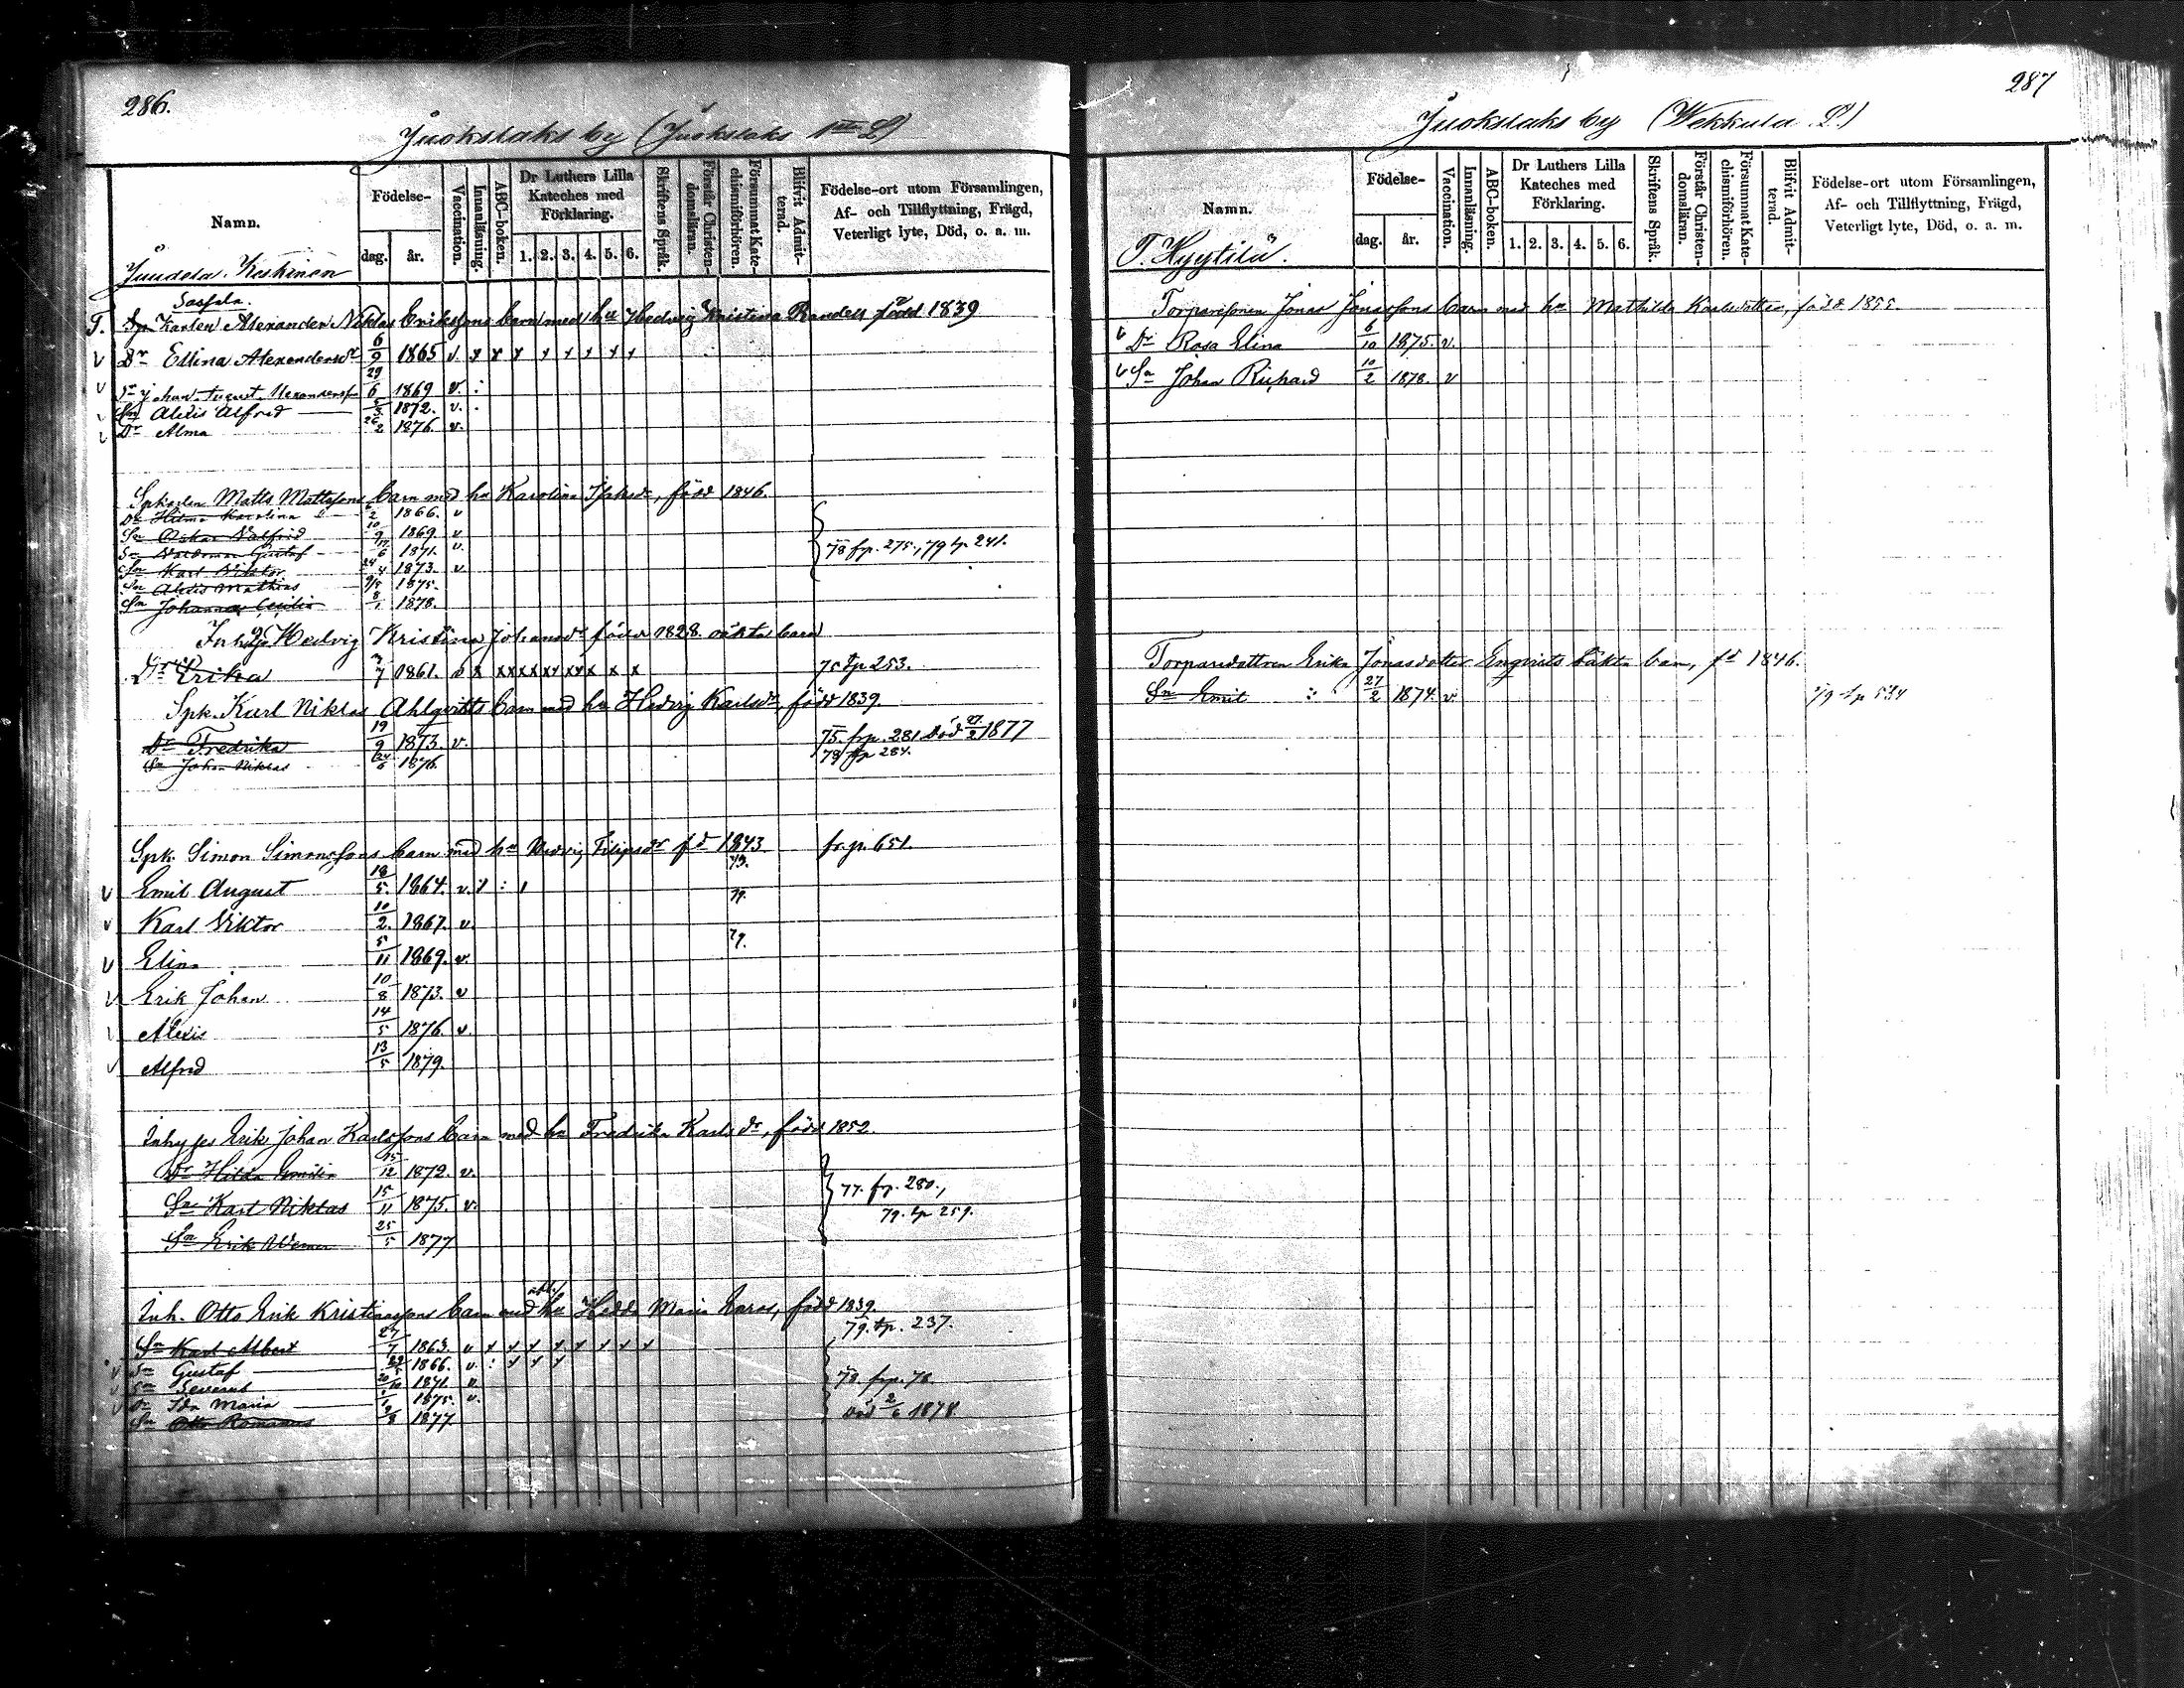 286.
Juokslaks by (Juokslaks 1sta L)
Namn.
Födelse-
dag.
år.
Vaccination.
Innanläsning.
ABC-boken.
Dr Luthers Lilla Kateches med Förklaring.
1. 2. 3. 4. 5. 6.
Skriftens Språk.
Förstår Christendomsläran.
Försummat Katechismiförhören.
Blifvit Admitterad.
Födelse-ort utom Församlingen, Af- och Tillflyttning, Frägd, Veterligt lyte, Död, o. a. m.
Juudela Keskinen
T. Karlen Alexander Niklas Erikssons barn med hu Hedvig Kristina Randell född 1839
v Dr Edlina Alexandersdr 6/9 1865 v. x x x x x x x x x
v Sn Johan August Alexanderss 29/6 1869 v. :
Sn Alexis Alfred 1872. v. .
v Dr Alma 26/2 1876 v.
Spkarlen Matts Mattssons barn med hu Karolina Isaksdr, född 1846.
Dr Hilma Karolina 2 1866. v
Sn Oskar Valfrid 10/9 1869 v
Sn Valdemar Gustaf 17/6 1871. v. 78 fp. 275, 79 tp 241.
Sn Karl Viktor 24/4 1873. v
Sn Alexis Mathias 9/5 1875.
Johanna Cecilia 8/1 1878.
Inh Hedvig Kristina Johansdr född 1828. oäkta barn
Dr Erika 7 1861. x x x x x x x x x x tp 253.
Spk. Karl Niklas Ahlqvists barn med hu Hedvig Karlsdr född 1839.
Dr Fredrika 19/9 1873. v. 75. frp. 281. Död 27/2 1877
Sn Johan Niklas 24/6 1876. 78 fp 284.
Spk. Simon Simonssons barn med hu Hedvig Filipsdr fd 1843 fr. p. 651.
79.
v Emil August 18/5. 1864. v. 1 : 1 79.
v Karl Viktor 10/2. 1867. v. 79.
v Elina 5/11 1869. v.
v Erik Johan 10/8 1873. v
v Alexis 14/5 1876 v
v Alfred 13/5 1879.
Inhyses Erik Johan Karlssons barn med hu Fredrika Karlsdr, född 1852.
Dr Hilda Emilia 15/12 1872. v.
Sn Karl Niklas 15/11 1875. v. 77. fp. 280., 79. tp 259.
Sn Erik Werner 25/5 1877
Inh. Otto Erik Kristianssons barn med hu Hedda Maria Lars, född 1839.
Sn Karl Albert 27/7 1863. v x x x x x x x x 79. tp. 237.
v Sn Gustaf 1866. v. : x x x
v Sn Severus 20/10 1871. v. 78. frp. 78
v Dr Ida Maria 1875. v.
Sn Otto Romanus /8 1877. död 2/6 1878.
287
Juokslaks by (Wekkula L.)
Namn.
Födelse-
dag.
år.
Vaccination.
Innanläsning.
ABC-boken.
Dr Luthers Lilla Kateches med Förklaring.
1. 2. 3. 4. 5. 6.
Skriftens Språk.
Förstår Christendomsläran.
Försummat Katechismiförhören.
Blifvit Admitterad.
Födelse-ort utom Församlingen, Af- och Tillflyttning, Frägd, Veterligt lyte, Död, o. a. m.
T. Hyytilä.
Torparesonen Jonas Jonassons barn med hu Mathilda Karlsdotter, född 1855.
v Dr Rosa Elina 6/10 1875. v.
v Sn Johan Rickard 10/2 1878. v
Torparedottren Erika Jonasdotter Engvists oäkta barn, fd 1846.
Sn Emil 27/2 1874. v. 79 tp 534